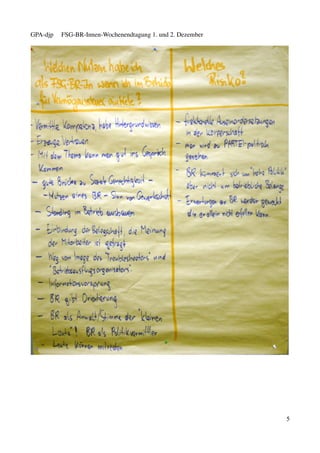 GPA-djp FSG-BR-Innen-Wochenendtagung 1. und 2. Dezember
Welchen Nutzen habe ich
als FSG-BR-In wenn ich im Betrieb
für
auftrete?
Welches
Risiko?
- Vermittle Kompetenz, habe Hintergrundwissen
- Erzeuge Vertrauen
- Mit dem Thema kann man gut ins Gespräch
kommen
- gute Brücke zu Soziale Gerechtigkeit -
- Nutzen eines BR - Sinn von Gewerkschaft
- Standing im Betrieb ausbauen
- Einbindung der Belegschaft, die Meinung
der Mitarbeiter ist gefragt
- Weg vom Image des "Troubleshooters" und
"Betriebsausflugsorganisators"
- Informationsvorsprung
- BR gibt Orientierung
- BR als Anwalt/Stimme der "kleinen
Leute"! BR als Politikvermittler
- Leute können mitreden
- fraktionelle Auseinandersetzungen
in der Körperschaft
- man wird als PARTEIpolitisch
gesehen
- BR kümmert sich um "hohe Politik"
aber nicht um betriebliche Belange
- Erwartungen an BR werden geweckt
die er allein nicht erfüllen kann
5